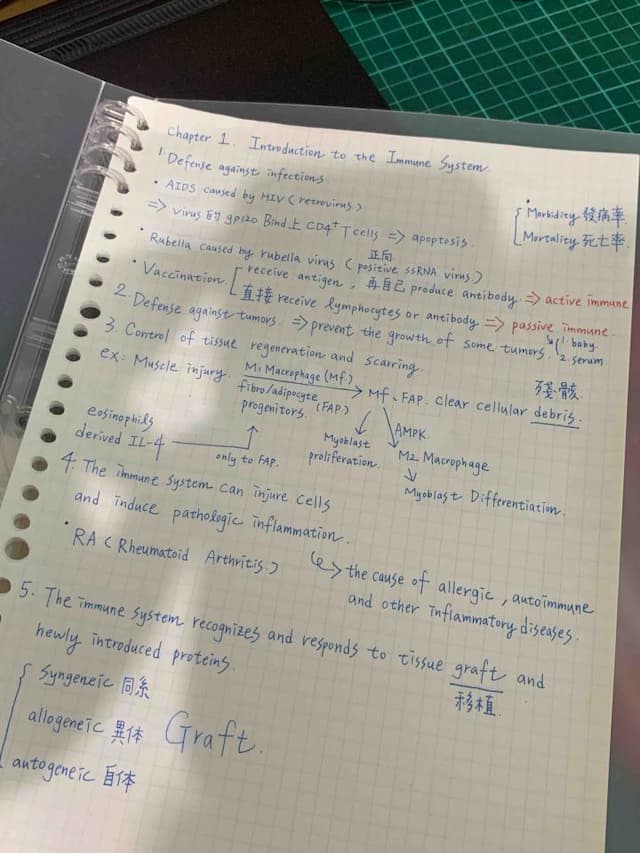 Chapter 1. Introduction to the Immune System.
1. Defense against infections.
• AIDS caused by HIV (retrovirus.)
⇒ virus 的 gp120 Bind 上 CD4⁺ T cells ⇒ apoptosis.
• Morbidity 發病率
Mortality 死亡率
• Rubella caused by rubella virus (positive ssRNA virus.)
正向
• Vaccination. receive antigen, 再自己 produce antibody. ⇒ active immune
直接 receive lymphocytes or antibody ⇒ passive immune
1. baby.
2. serum
2. Defense against tumors. ⇒ prevent the growth of some tumors.
3. Control of tissue regeneration and scarring.
ex: Muscle injury. M1 Macrophage (Mf.)
fibro/adipocyte progenitors. (FAP)
→ Mf、FAP. clear cellular debris.
殘骸.
eosinophils derived IL-4
only to FAP.
Myoblast proliferation.
AMPK.
M2 Macrophage
↓
Myoblast Differentiation.
4. The immune system can injure cells
and induce pathologic inflammation.
• RA (Rheumatoid Arthritis.)
↳ the cause of allergic, autoimmune
and other inflammatory diseases.
5. The immune system recognizes and responds to tissue graft and
移植.
newly introduced proteins.
syngeneic 同系
allogeneic 異体 Graft.
autogeneic 自体